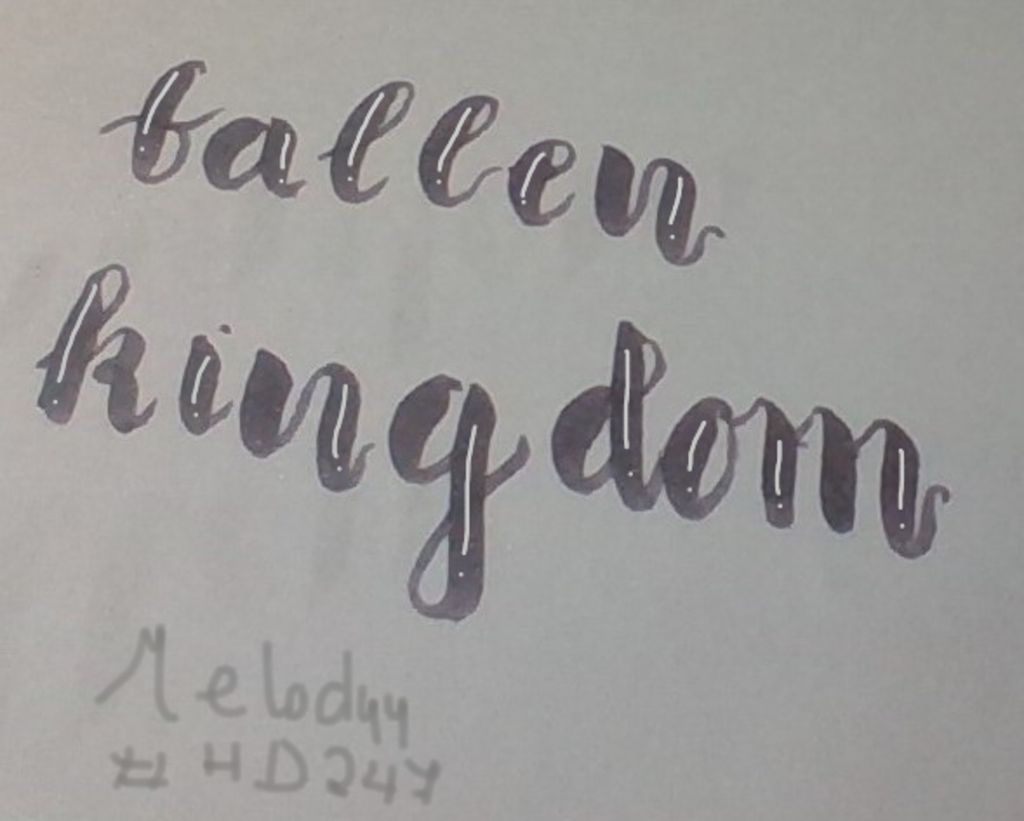 fallen
kingdom
Melodyy
#HD247